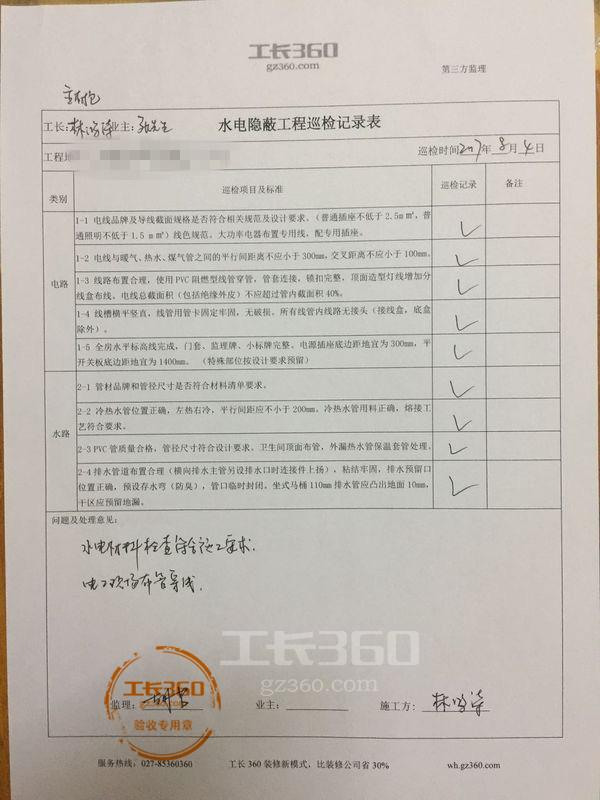 工长360
gz360.com
第三方监理
主材包
工长: 业主:
水电隐蔽工程巡检记录表
工程地
巡检时间2017年8月4日
类别 巡检项目及标准 巡检记录 备注
电路
1-1 电线品牌及导线截面规格是否符合相关规范及设计要求、(普通插座不低于2.5m㎡,普
通照明不低于1.5 m㎡)线色规范。大功率电器布置专用线,配专用插座。
1-2 电线与暖气、热水、煤气管之间的平行间距离不应小于300mm,交叉距离不应小于100mm。
1-3 线路布置合理,使用PVC 阻燃型线管穿管,管套连接,锁扣完整,顶面造型灯线增加分
线盒布线、电线总截面积(包括绝缘外皮)不应超过管内截面积40%。
1-4 线槽横平竖直,线管用管卡固定牢固,无破损。所有线管内线路无接头(接线盒,底盒
除外)。
1-5 全房水平标高线完成,门套、监理牌、小标牌完整、电源插座底边距地宜为300mm,平
开关板底边距地宜为1400mm。 (特殊部位按设计要求预留)
水路
2-1 管材品牌和管径尺寸是否符合材料清单要求。
2-2 冷热水管位置正确,左热右冷,平行间距应不小于200mm。冷热水管用料正确,熔接工
艺符合要求。
2-3 PVC管质量合格,管径尺寸符合设计要求、卫生间顶面布管,外漏热水管保温套管处理。
2-4 排水管道布置合理(横向排水主管另设排水口时连接件上扬),粘结牢固,排水预留口
位置正确,预设存水弯(防臭),管口临时封闭。坐式马桶110mm 排水管应凸出地面10mm,
干区应预留地漏。
问题及处理意见:
水电材料检查符合施工要求.
电工现场布管穿线.
工长360
gz360.com
工长360
监理: 业主: 施工方:
验收专用章
服务热线:027-85360360 工长360装修新模式,比装修公司省30% wh.gz360.com